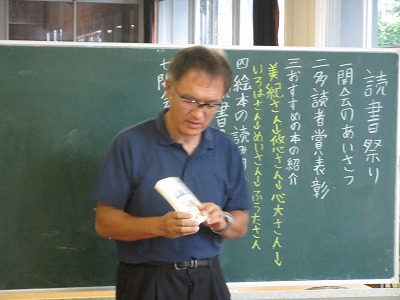 読書祭り
一開会のあいさつ
二多読者賞表彰
三おすすめの本の紹介
美紀さん→悠心さん→心大さん→
いろはさん→めいさん→ふうたさん
四絵本の読み聞